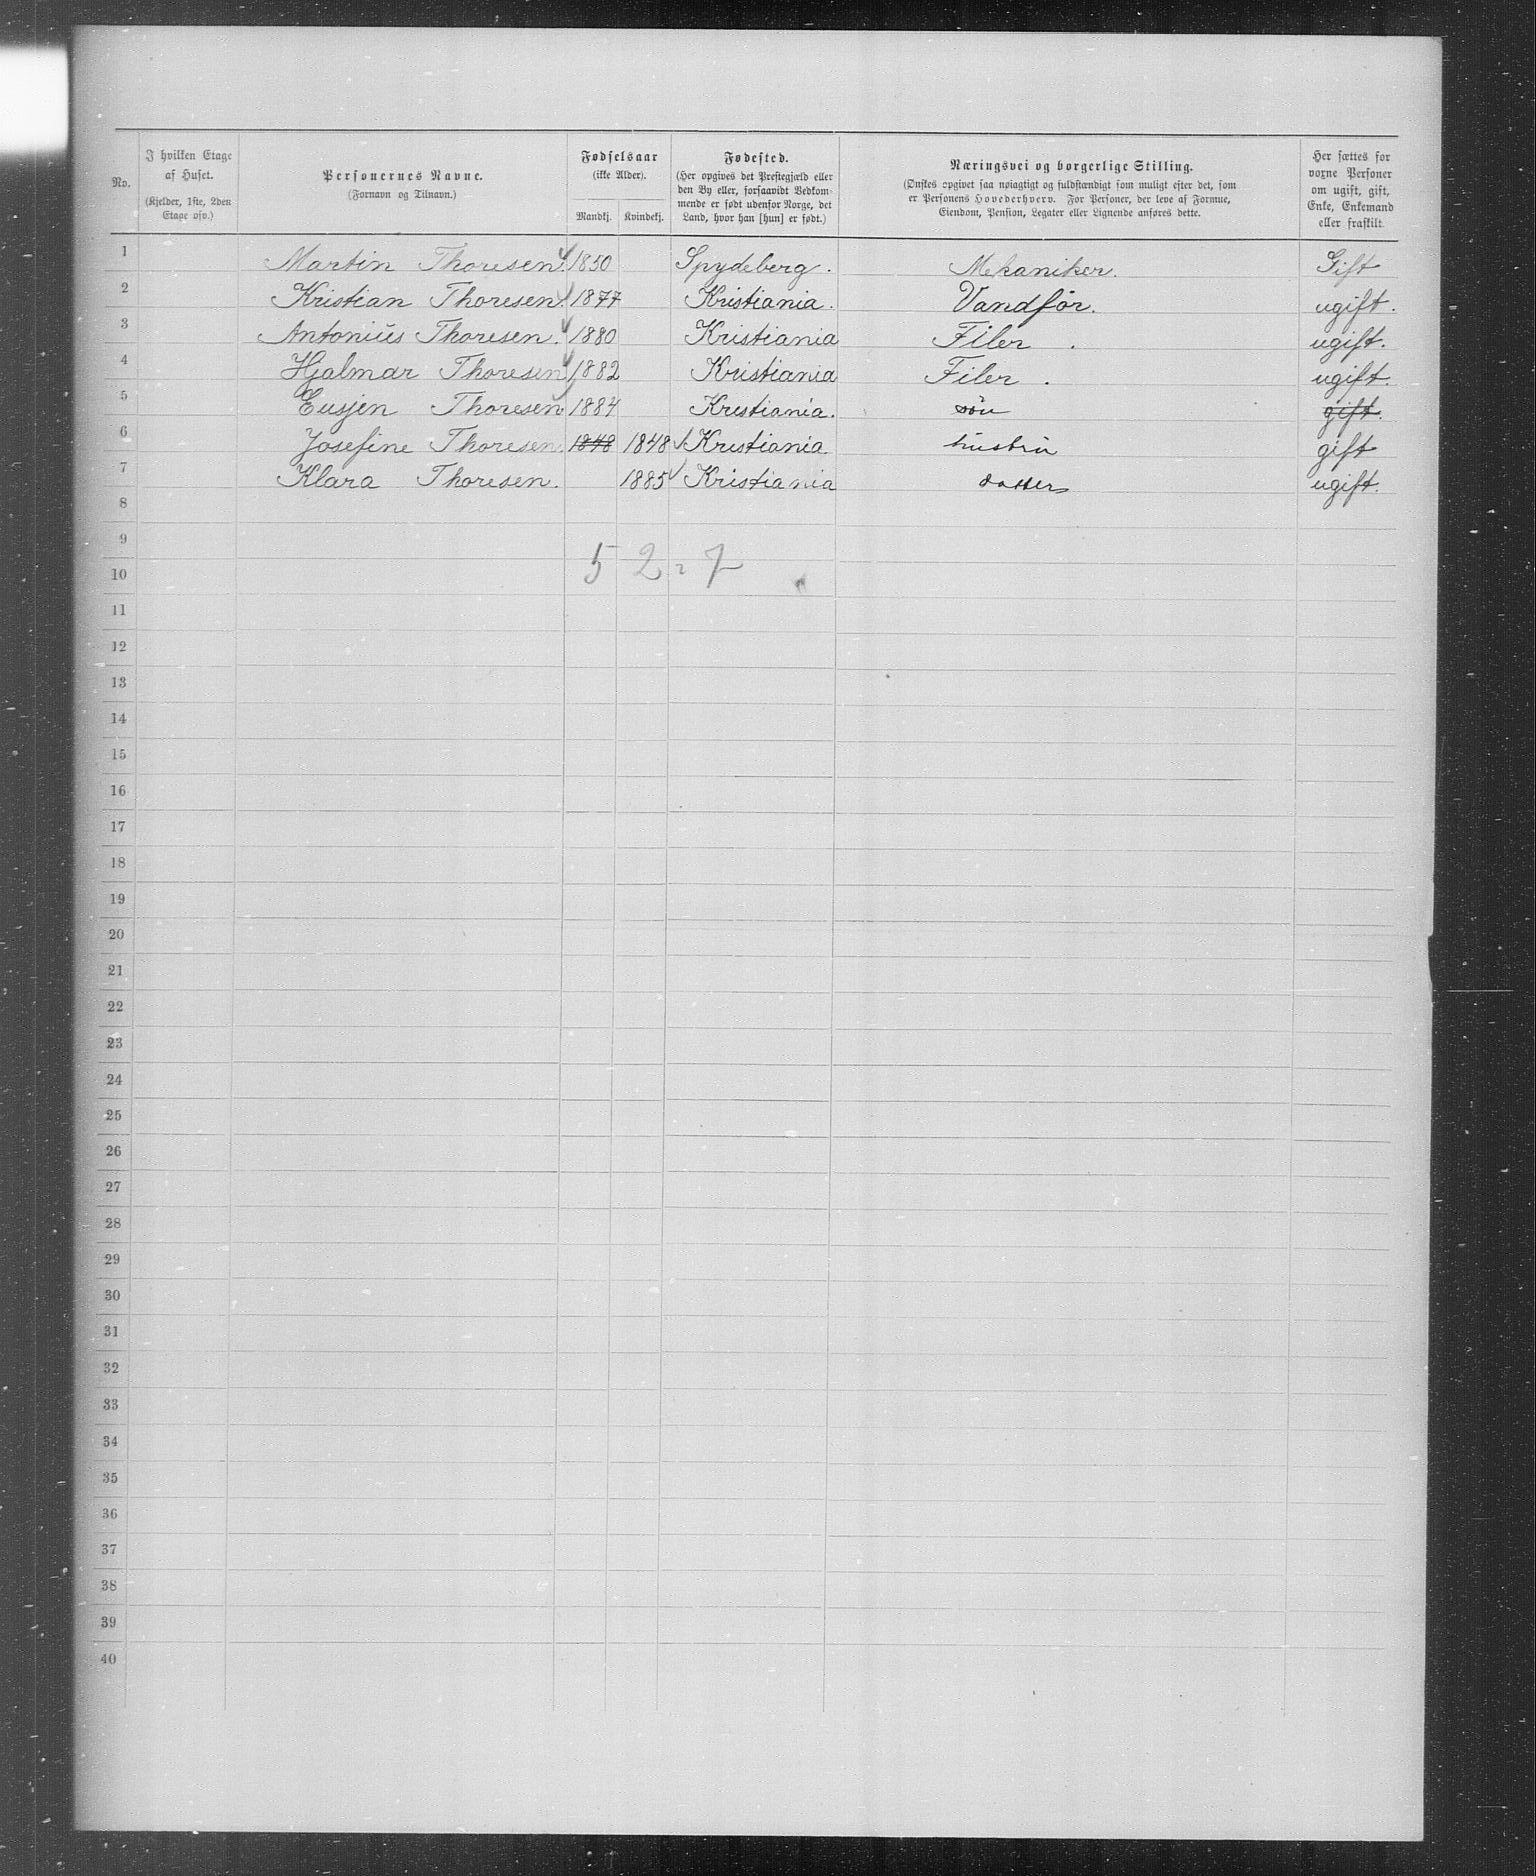 No.
I hvilken Etage af Huset.
(Kjelder, 1ste, 2den Etage osv.)
Personernes Navne.
(Fornavn og Tilnavn.)
Fødselsaar
(ikke Alder).
Mandkj. Kvindekj.
Fødested.
(Her opgives det Prestegjæld eller
den By eller, forsaavidt Vedkom-
mende er født udenfor Norge, det
Land, hvor han [hun] er født.)
Næringsvei og borgerlige Stilling.
(Ønskes opgivet saa nøiagtigt og fuldstændigt som muligt efter det, som
er Personens Hovederhverv. For Personer, der leve af Formue,
Eiendom, Pension, Legater eller Lignende anføres dette.
Her sættes for
voxne Personer
om ugift, gift,
Enke, Enkemand
eller fraskilt.
1 Martin Thoresen. 1850 Spydeberg. Mekaniker. Gift
2 Kristian Thoresen. 1877 Kristiania. Vandför. ugift.
3 Antonius Thoresen. 1880 Kristiania Filer. ugift.
4 Hjalmar Thoresen 1882 Kristiania Filer. ugift.
5 Eusjen Thoresen 1884 Kristiania. sön gift.
6 Josefine Thoresen. 1848 1848 Kristiania. hustru gift
7 Klara Thoresen. 1885 Kristiania datter ugift.
8
9
5 2 = 7
10
11
12
13
14
15
16
17
18
19
20
21
22
23
24
25
26
27
28
29
30
31
32
33
34
35
36
37
38
39
40